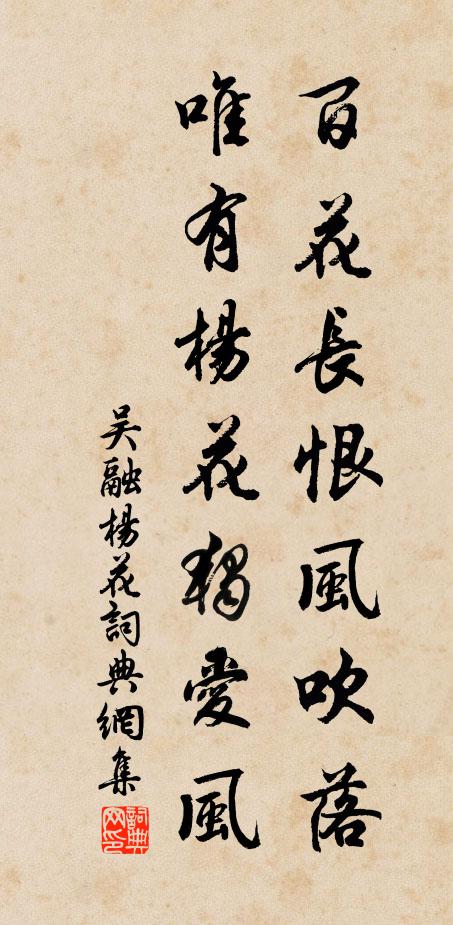 百花長恨風吹落
唯有楊花獨愛風
吳融楊花詞典網集
詞典網印